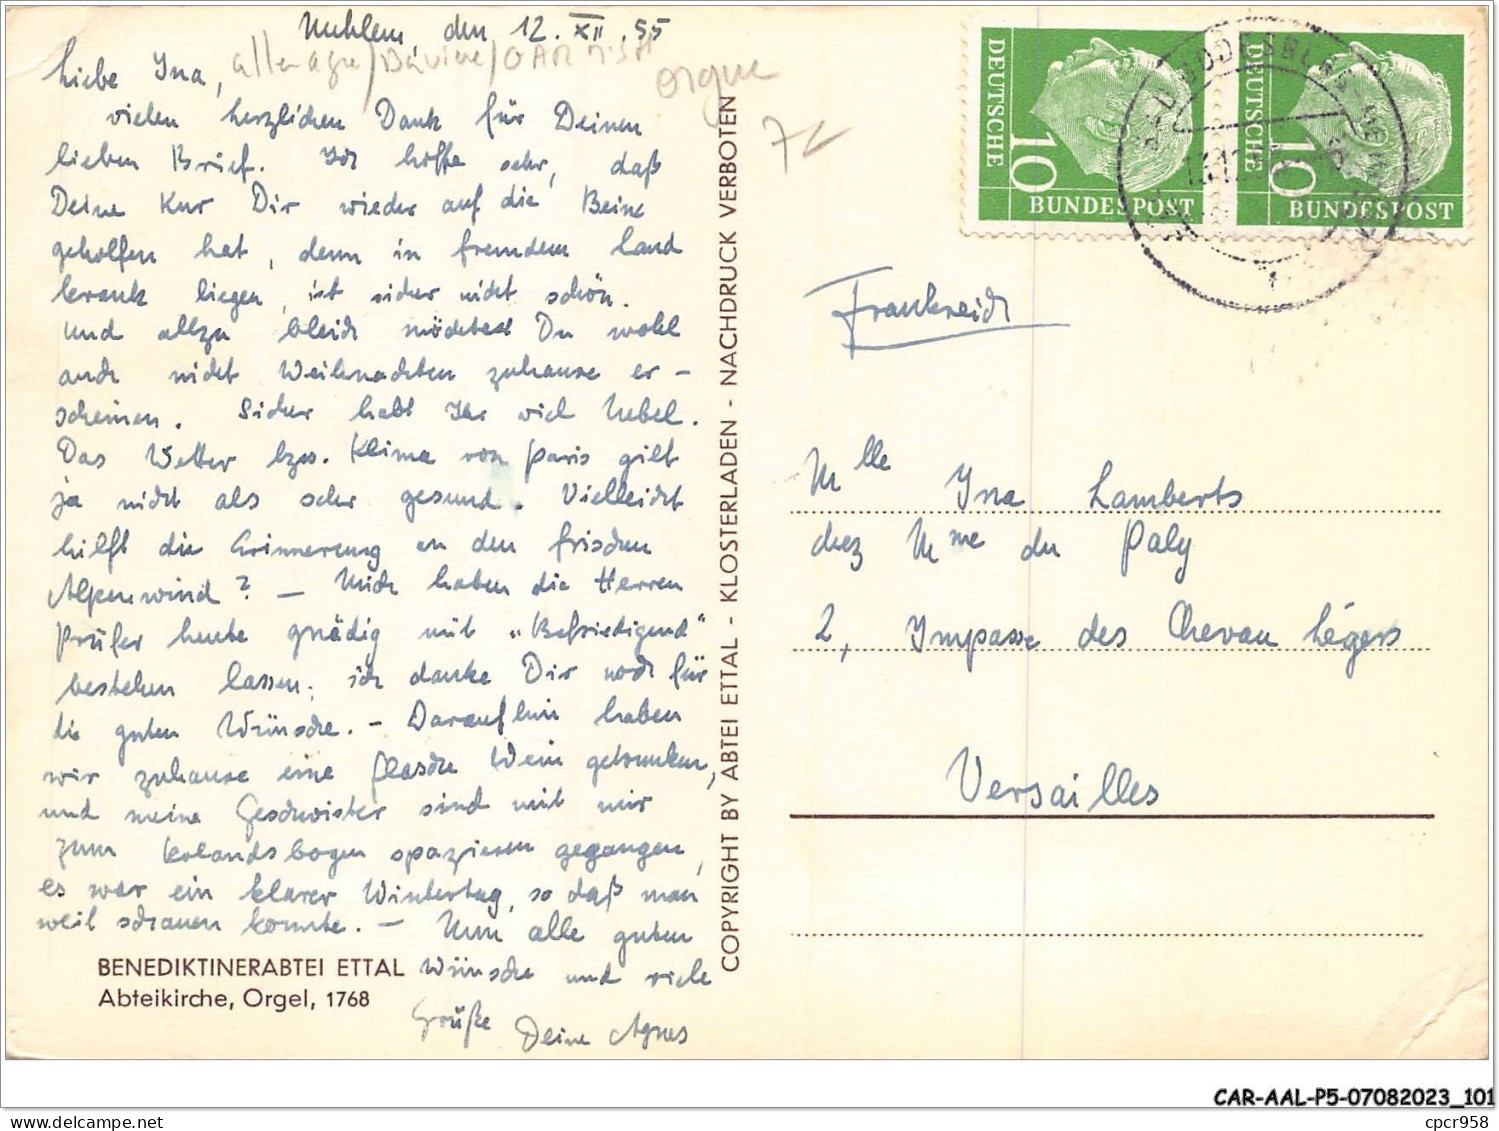 Mehlem, den 12. XII. 55
Liebe Ina,
Allemagne/Bavière/GARMISH
orgue
7
vielen herzlichen Dank für Deinen
lieben Brief. Ich hoffe sehr, daß
Deine Kur Dir wieder auf die Beine
geholfen hat, denn in fremdem Land
krank liegen, ist sicher nicht schön.
Und allzu bleich möchtest Du wohl
auch nicht Weihnachten zuhause er-
scheinen. Sicher habt Ihr viel Nebel.
Das Wetter bzw. Klima von Paris gilt
ja nicht als sehr gesund. Vielleicht
hilft die Erinnerung an den frischen
Alpenwind? – Mich haben die Herren
Prüfer heute gnädig mit „Befriedigend"
bestehen lassen; ich danke Dir noch für
die guten Wünsche. – Daraufhin haben
wir zuhause eine Flasche Wein getrunken,
und meine Geschwister sind mit mir
zum Rolandsbogen spazieren gegangen,
es war ein klarer Wintertag, so daß man
weit schauen konnte. – Nun alle guten
Wünsche und viele
Grüße Deine Agnes
BENEDIKTINERABTEI ETTAL
Abteikirche, Orgel, 1768
COPYRIGHT BY ABTEI ETTAL - KLOSTERLADEN - NACHDRUCK VERBOTEN
DEUTSCHE
10
BUNDESPOST
DEUTSCHE
10
BUNDESPOST
Frankreich
Mlle Ina Lamberts
chez Mme du Paly
2, Impasse des Chevau légers
Versailles
CAR-AAL-P5-07082023_101
cpcr958